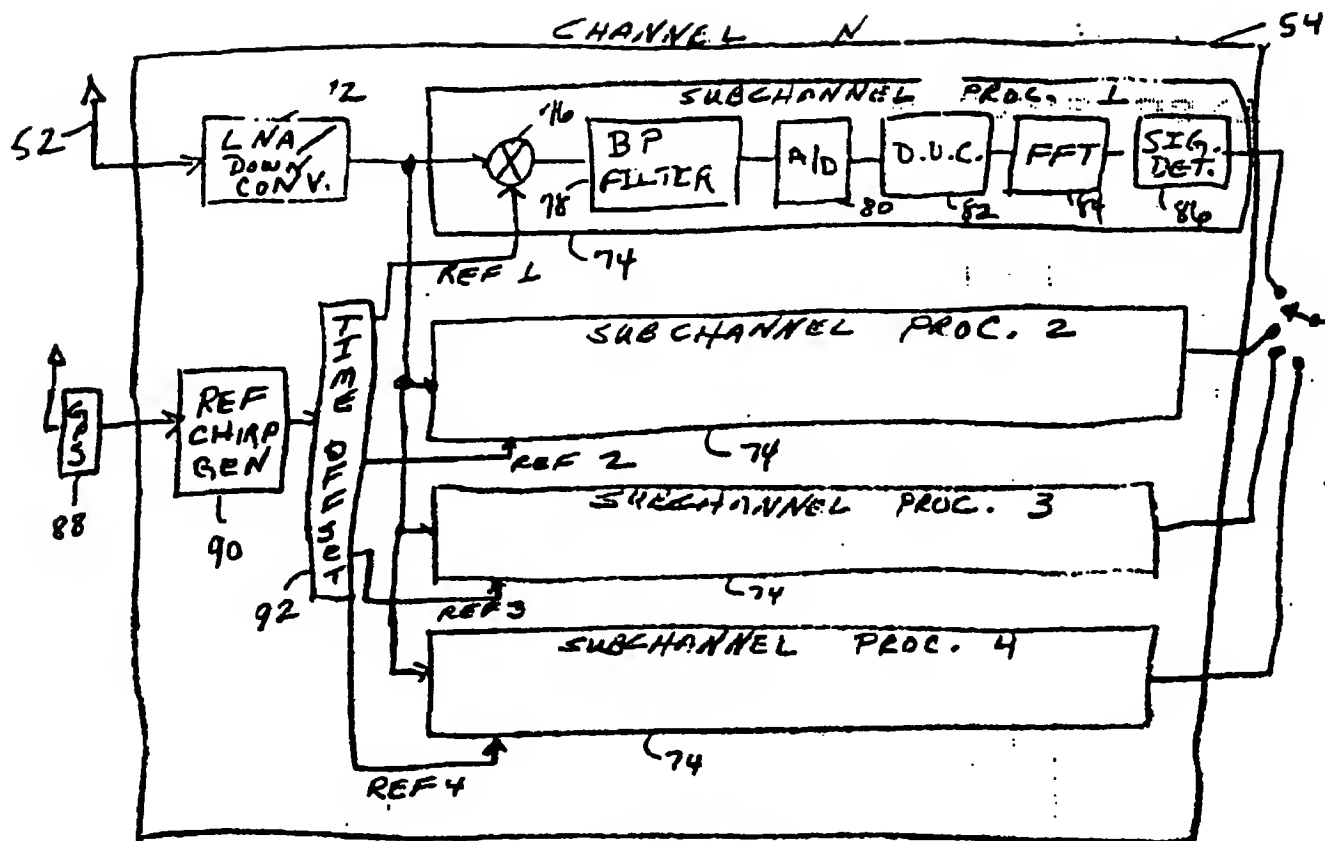 CHANNEL N
54
52
12
LNA
DOWN
CONV.
SUBCHANNEL PROC. 1
76
BP
FILTER
78
A/D
80
D.U.C.
82
FFT
84
SIG.
DET.
86
74
REF 1
SUBCHANNEL PROC. 2
74
REF 2
GPS
88
REF
CHIRP
GEN
90
TIME OFFSET
92
SUBCHANNEL PROC. 3
74
REF 3
SUBCHANNEL PROC. 4
74
REF 4